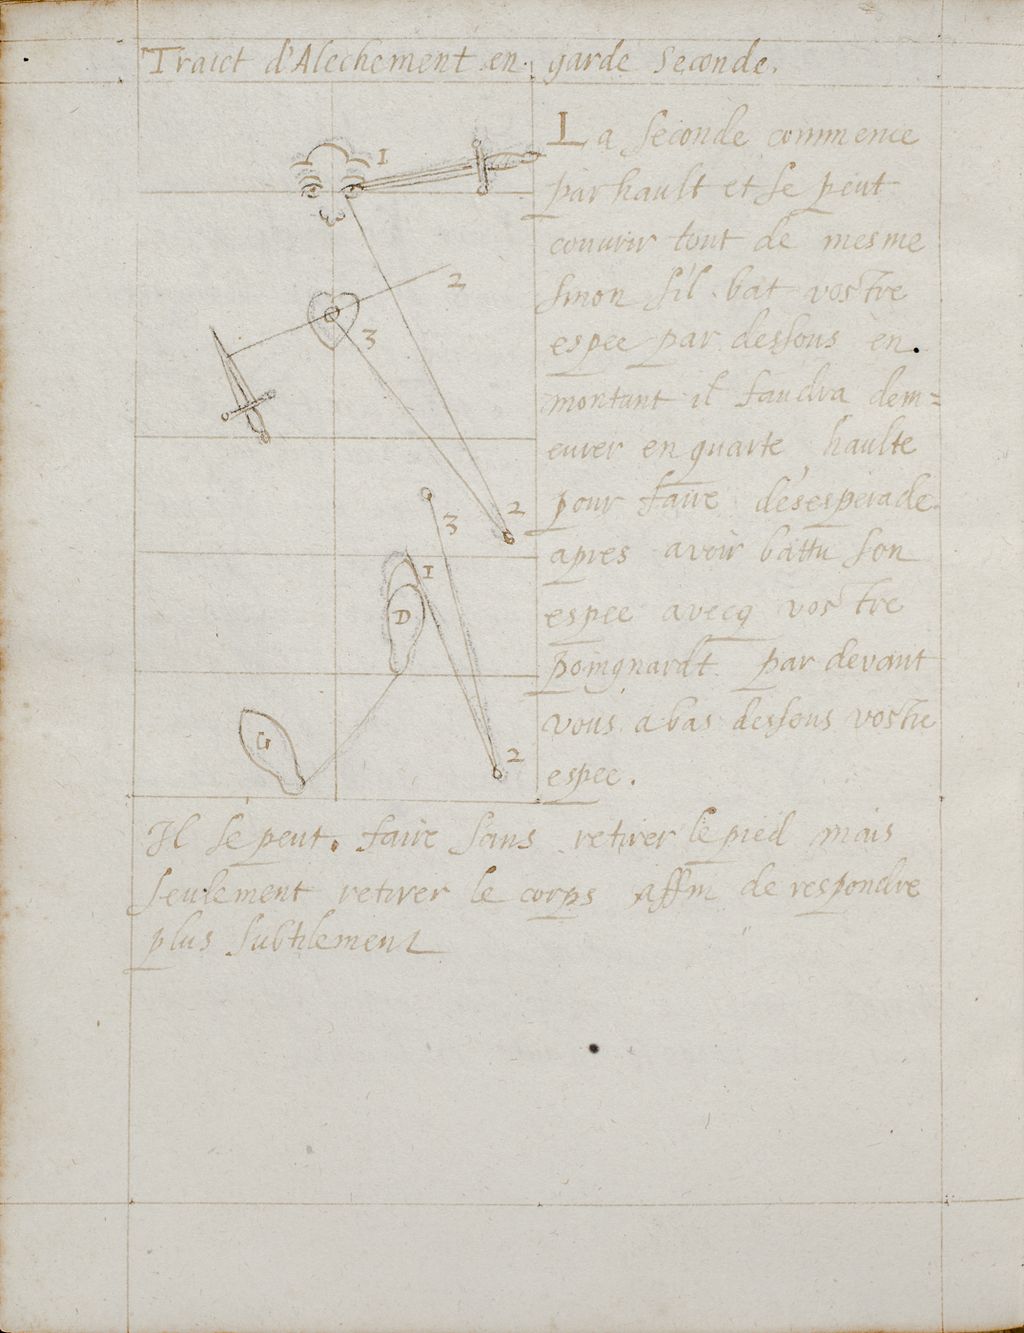 Traict d'Alechement en garde Seconde.
La Seconde commence
par hault et se peut
couurir tout de mesme
sinon s'il bat vostre
espee par dessous en
montant il faudra dem=
eurer en quarte haulte
pour faire désesperade
apres avoir battu son
espee avecq vostre
poingnardt par devant
vous abas dessous vostre
espee.
1
2
3
2
3
1
D
G
2
Il se peut faire sans retirer le pied mais
seulement retirer le corps affin de respondre
plus subtilement